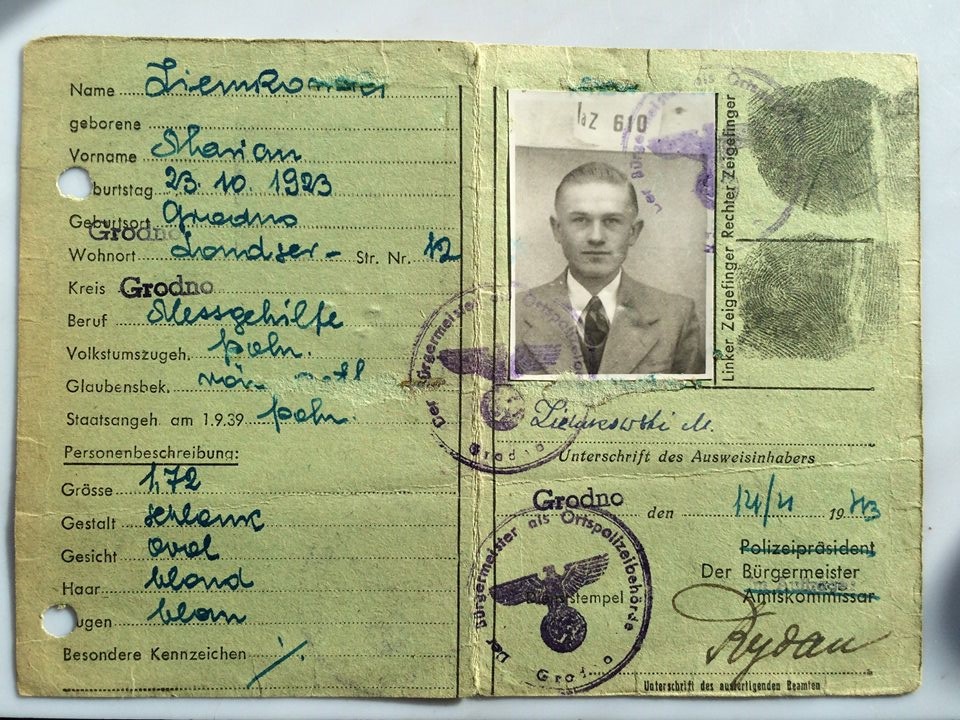 Name
geborene
Vorname Marian
burtstag 23. 10. 1923
Geburtsort Grodno
Grodno
Wohnort Str. Nr. 12
Kreis Grodno
Beruf Messgehilfe
Volkstumszugeh. poln.
Glaubensbek. röm.
Staatsangeh am 1.9.39 poln.
Personenbeschreibung:
Grösse 1,72
Gestalt schlank
Gesicht oval
Haar blond
ugen blau
Besondere Kennzeichen
laz 610
Linker Zeigefinger Rechter Zeigefinger
Der Bürgermeister als Ortspolizeibehörde
Grodno
Ziemkowski M.
Unterschrift des Ausweisinhabers
Grodno den 19 43
Polizeipräsident
Der Bürgermeister
Amtskommissar
Dienststempel
Der Bürgermeister als Ortspolizeibehörde
Grodno
Rydau
Unterschrift des ausfertigenden Beamten